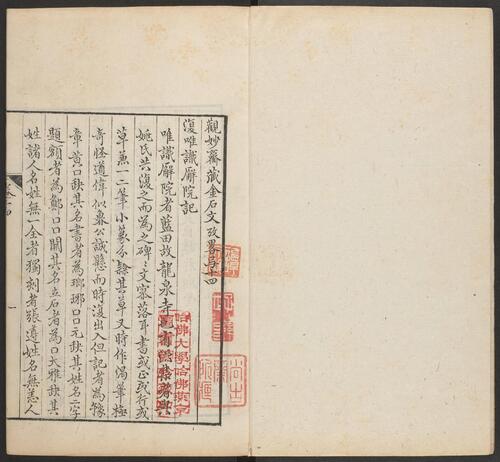 觀妙齋藏金石文攷畧卷十四
復唯識廨院記
唯識廨院者藍田故龍泉寺
姚氏共復之而為之碑文寥落耳書或正或行或
草兼一二筆小篆分隸其草又時作渴筆極
奇怪遒偉似魯公誠懸而時復出入但記者為豫
章黄口缺其名書者為瑯琊口口元缺其姓名二字
題額者為鄭口口闕其名立石者為口大雅缺其
姓諸人名姓無一全者獨刻者張遵姓名無恙人
一
哈佛大學哈佛燕京